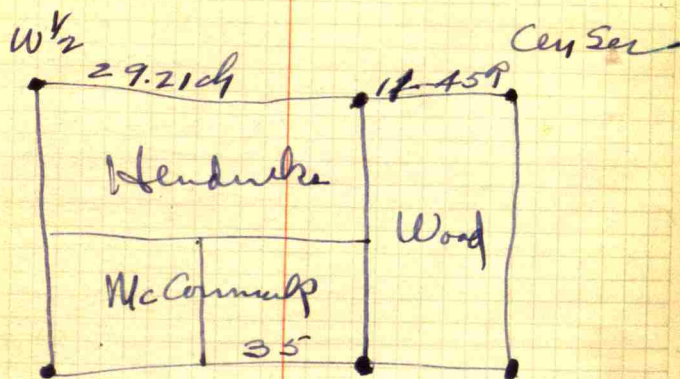 W 1/2
Cen Sec
29.21 ch
11.45
Hendricks
Wood
McCormick
35